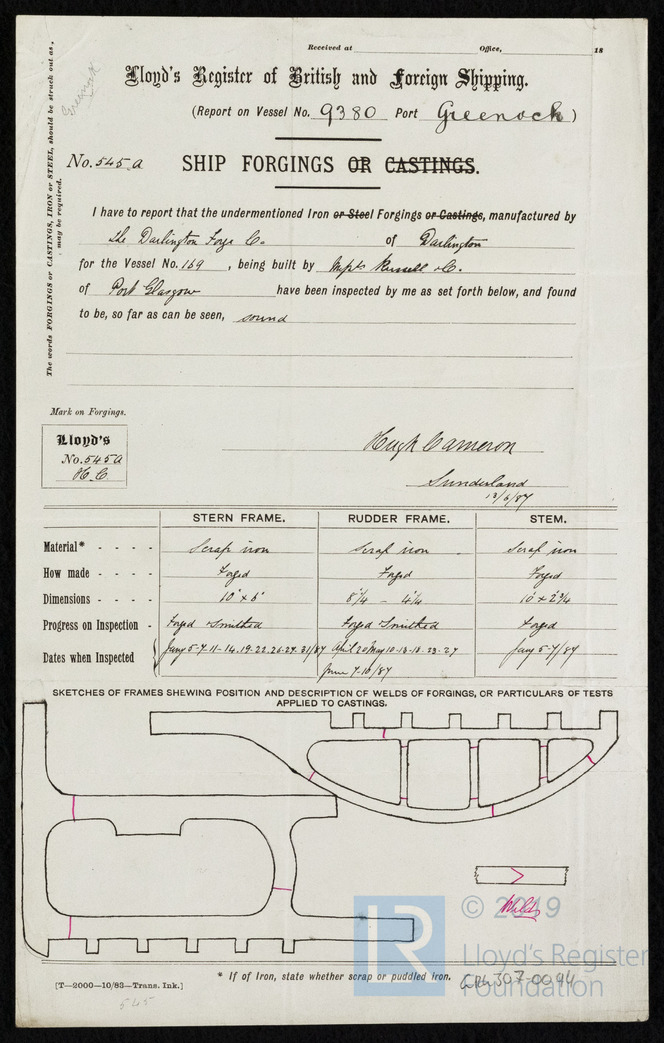 Received at Office, 18
Lloyd's Register of British and Foreign Shipping.
(Report on Vessel No. 9380 Port Greenock)
Greenock
The words FORGINGS or CASTINGS, IRON or STEEL, should be struck out as
may be required.
No. 545 a SHIP FORGINGS OR CASTINGS.
I have to report that the undermentioned Iron or Steel Forgings or Castings, manufactured by
The Darlington Forge Co of Darlington
for the Vessel No. 169, being built by Russell & Co.
of Port Glasgow have been inspected by me as set forth below, and found
to be, so far as can be seen, sound
Mark on Forgings.
Lloyd's
No. 545 a
H. C.
Hugh Cameron
Sunderland
13/6/87
STERN FRAME. RUDDER FRAME. STEM.
Material* - - - - Scrap iron Scrap iron Scrap iron
How made - - - - Forged Forged Forged
Dimensions - - - - 10" x 6" 8 1/4 - 4 1/4 10 x 2 3/4
Progress on Inspection - Forged & Smithed Forged & Smithed Forged
Dates when Inspected Jany 5-7-11-14-19-22-26-27-31/87 April 20 May 10-13-18-23-27 Jany 5-7/87
June 7-10/87
SKETCHES OF FRAMES SHEWING POSITION AND DESCRIPTION OF WELDS OF FORGINGS, OR PARTICULARS OF TESTS
APPLIED TO CASTINGS.
Welds
© 2019
LR
Lloyd's Register
Foundation
* If of Iron, state whether scrap or puddled iron.
GRK307-0094
[T—2000—10/83—Trans. Ink.]
545